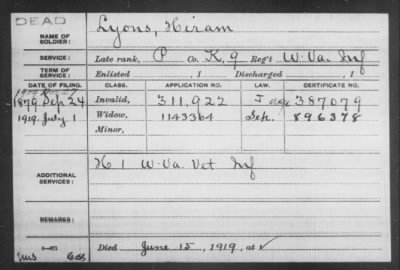 DEAD
NAME OF SOLDIER: Lyons, Hiram
SERVICE: Late rank, P Co. K, 9 Reg't W. Va. Inf
TERM OF SERVICE: Enlisted , 1 Discharged , 1
DATE OF FILING. CLASS. APPLICATION NO. LAW. CERTIFICATE NO.
1879 Sep 24 Invalid, 311,922 J 387079
1919 July 1 Widow, 1143364 Sep. 896378
Minor,
ADDITIONAL SERVICES: H 1 W. Va. Vet Inf
REMARKS:
Died June 15, 1919, at ✓